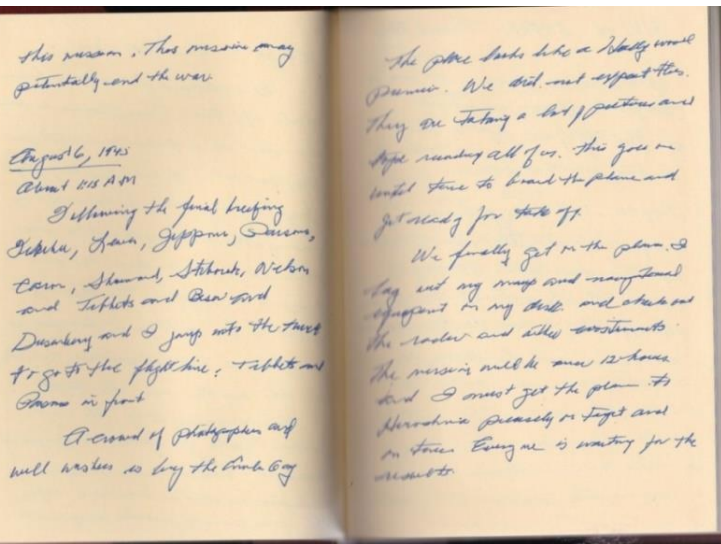 this mission. This mission may
potentially end the war.
August 6, 1945
About 1:15 A.M
Following the final briefing
Ferebee, Lewis, Jeppson, Parsons,
Caron, Shumard, Stiborik, Nelson
and Tibbets and Beser and
Dusenbury and I jump into the truck
to go to the flight line. Tibbets and
Parsons in front
A crowd of photographers and
well wishers is by the Enola Gay
The place looks like a Hollywood
premier. We did not expect this.
They are taking a lot of pictures and
tape recording all of us. this goes on
until time to board the plane and
get ready for take off.
We finally get in the plane. I
lay out my maps and navigational
equipment on my desk and check out
the radar and other instruments.
The mission will be over 12 hours
and I must get the plane to
Hiroshima precisely on target and
on time. Everyone is waiting for the
results.